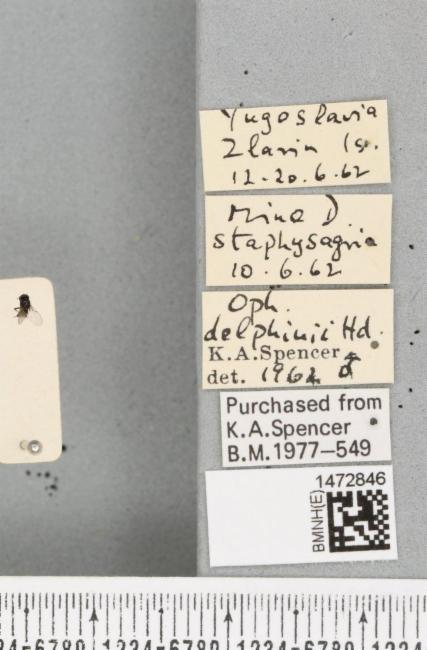 Yugoslavia
Zlarin Is.
12-20.6.62
Mine D
staphysagria
10.6.62
Oph.
delphinii Hd.
K.A.Spencer
det. 1962 ♂
Purchased from
K.A.Spencer
B.M.1977–549
1472846
BMNH(E)